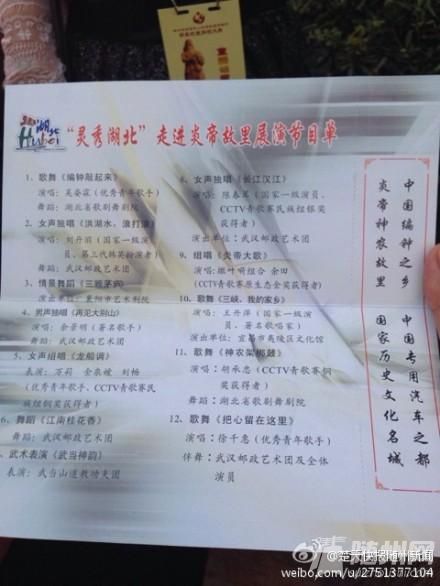 湖北
Hubei
“灵秀湖北”走进炎帝故里展演节目单
1、歌舞《编钟敲起来》
演唱：吴姿霖（优秀青年歌手）
舞蹈：湖北省歌剧舞剧院
2、女声独唱《洪湖水，浪打浪》
演唱：刘丹丽（国家一级演
员、第三代韩英扮演者）
舞蹈：武汉邮政艺术团
3、情景舞蹈《三顾茅庐》
演出单位：襄阳市艺术剧院
4、男声独唱《再见大别山》
演唱：余景明（著名歌手）
舞蹈：武汉邮政艺术团
5、女声组唱《龙船调》
表演：万莉 全
（优秀青年歌手、CCTV青歌赛民
族组铜奖获得者）
6、舞蹈《江南桂花香》
舞蹈：武汉邮政艺术团
7、武术表演《武当神韵》
表演：武当山道教功夫团
8、女声独唱《长江汉江》
演唱：陈春茸（国家一级演员、
CCTV青歌赛民族组银奖
获得者）
演出单位：武汉邮政艺术团
9、组唱《炎帝大歌》
演唱：撒叶嗬组合 余田
（CCTV青歌赛原生态金奖获得者）
10、歌舞《三峡，我的家乡》
演唱：王丹萍（国家一级演
员、著名歌唱家）
演出单位：宜昌市夷陵区文化馆
11、歌舞《神农架梆鼓》
演唱：胡承志（CCTV青歌赛铜
奖获得者）
舞蹈：湖北省歌剧舞剧院
12、歌舞《把心留在这里》
演唱：徐千惠（优秀青年歌手）
伴舞：武汉邮政艺术团及全体
演员
中国编钟之乡 中国专用汽车之都
炎帝神农故里 国家历史文化名城
随州网
@楚天快报随州新闻
weibo.com/u/2751377104